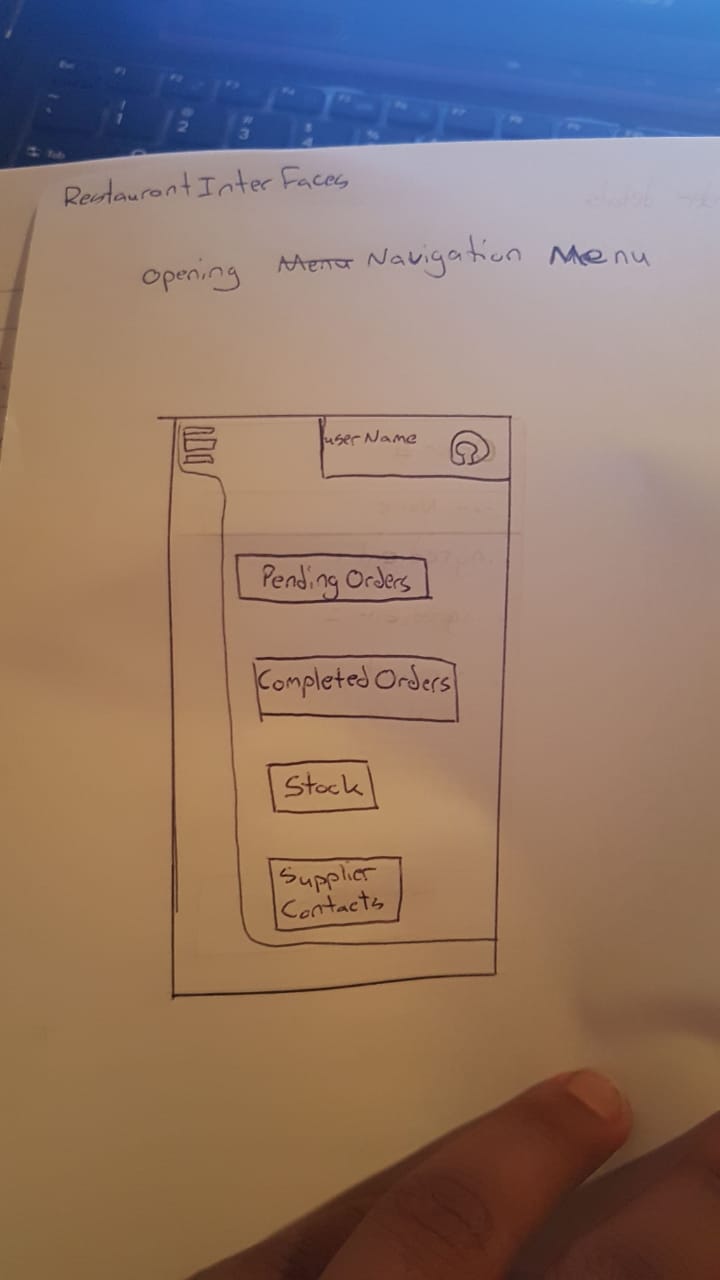 Restaurant InterFaces
Opening Menu Navigation Menu
userName
Pending Orders
Completed Orders
Stock
Supplier
Contacts